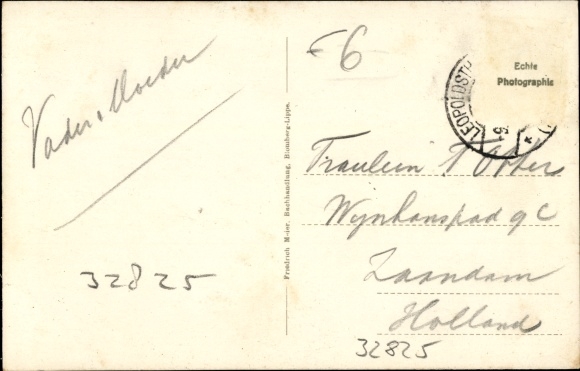 Vader & Moeder
32825
Friedrich Meier, Buchhandlung, Blomberg-Lippe.
€6
Echte
Photographie
LEOPOLDST
Fräulein T Otter
Wynkanspad 9c
Zaandam
Holland
32825